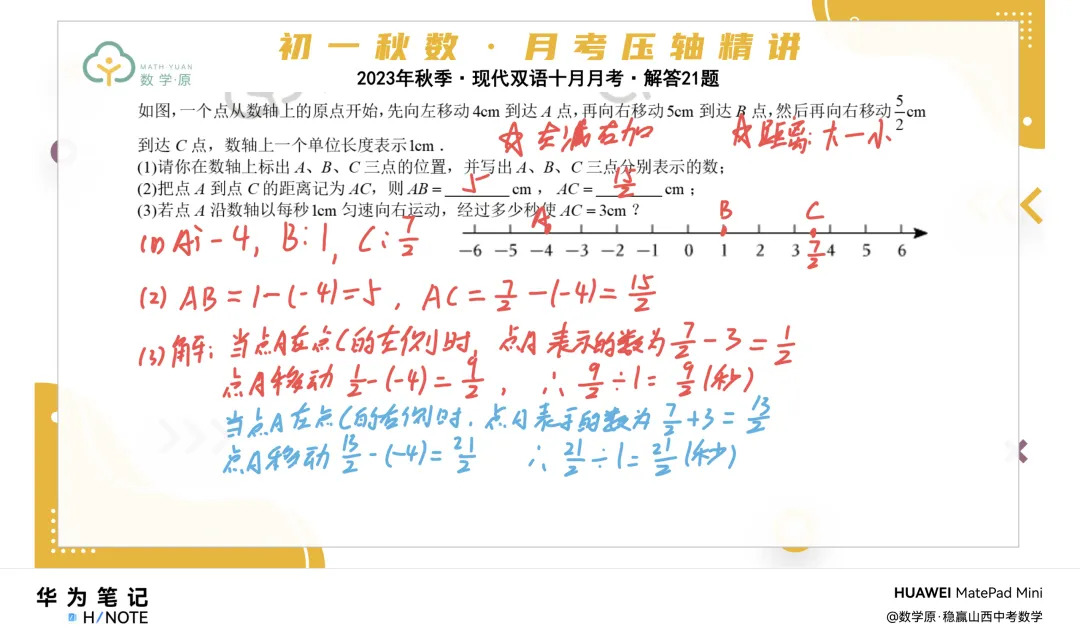 初一秋数·月考压轴精讲
MATH·YUAN
数学·原
2023年秋季·现代双语十月月考·解答21题
如图,一个点从数轴上的原点开始,先向左移动4cm到达A点,再向右移动5cm到达B点,然后再向右移动5/2cm
到达C点,数轴上一个单位长度表示1cm.
☆左减右加
☆距离:大-小
(1)请你在数轴上标出A、B、C三点的位置,并写出A、B、C三点分别表示的数;
(2)把点A到点C的距离记为AC,则AB=5cm,AC=15/2cm;
(3)若点A沿数轴以每秒1cm匀速向右运动,经过多少秒使AC=3cm?
A B C
-6 -5 -4 -3 -2 -1 0 1 2 3 7/2 4 5 6
(1) A:-4, B:1, C:7/2
(2) AB=1-(-4)=5, AC=7/2-(-4)=15/2
(3)解:当点A在点C的左侧时,点A表示的数为7/2-3=1/2
点A移动1/2-(-4)=9/2,∴9/2÷1=9/2(秒)
当点A在点C的右侧时,点A表示的数为7/2+3=13/2
点A移动13/2-(-4)=21/2 ∴21/2÷1=21/2(秒)
华为笔记
H/NOTE
HUAWEI MatePad Mini
@数学原·稳赢山西中考数学